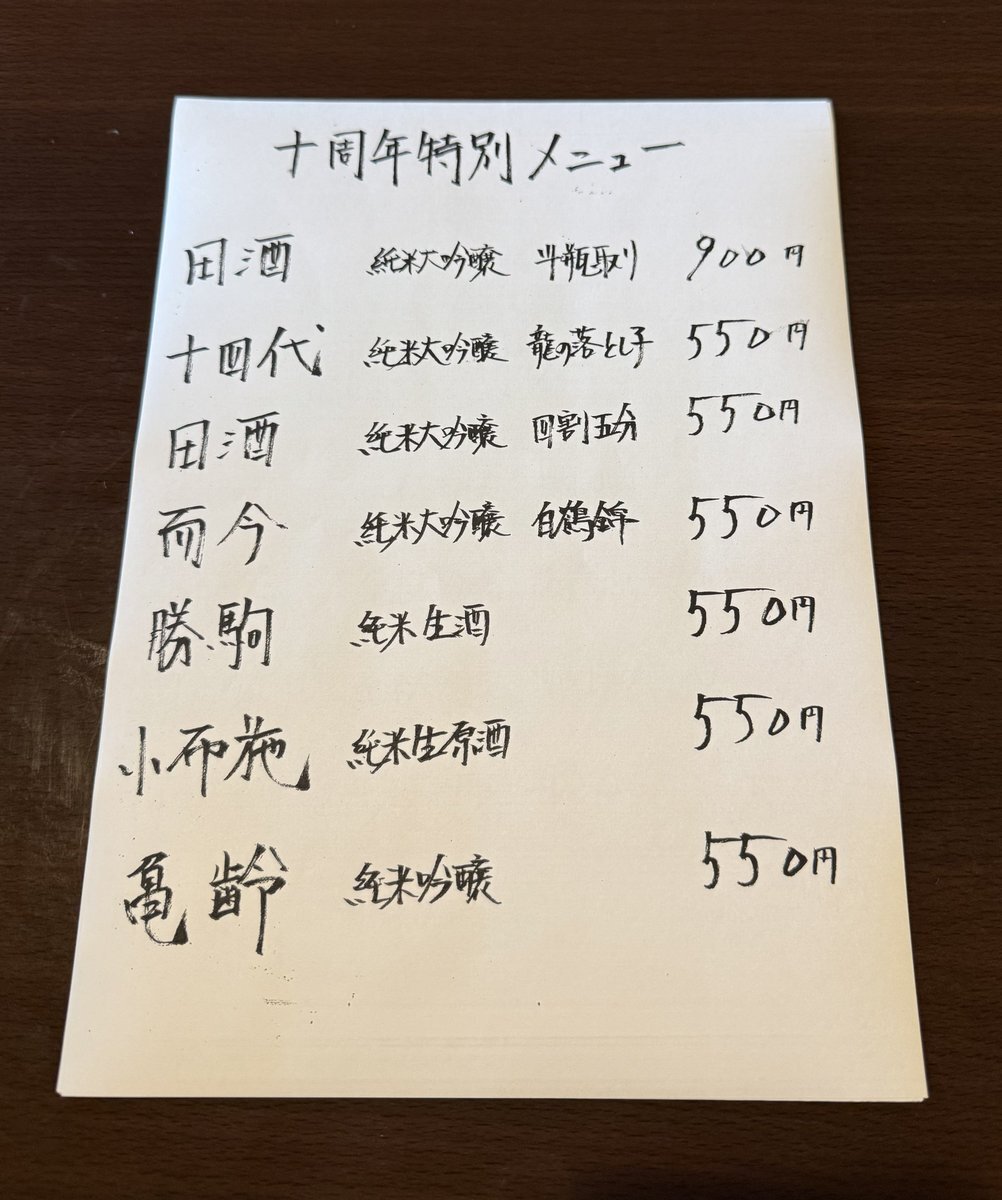 十周年特別メニュー
田酒 純米大吟醸 斗瓶取り 900円
十四代 純米大吟醸 龍の落とし子 550円
田酒 純米大吟醸 四割五分 550円
而今 純米大吟醸 白鶴錦 550円
勝駒 純米生酒 550円
小布施 純米生原酒 550円
亀齢 純米吟醸 550円